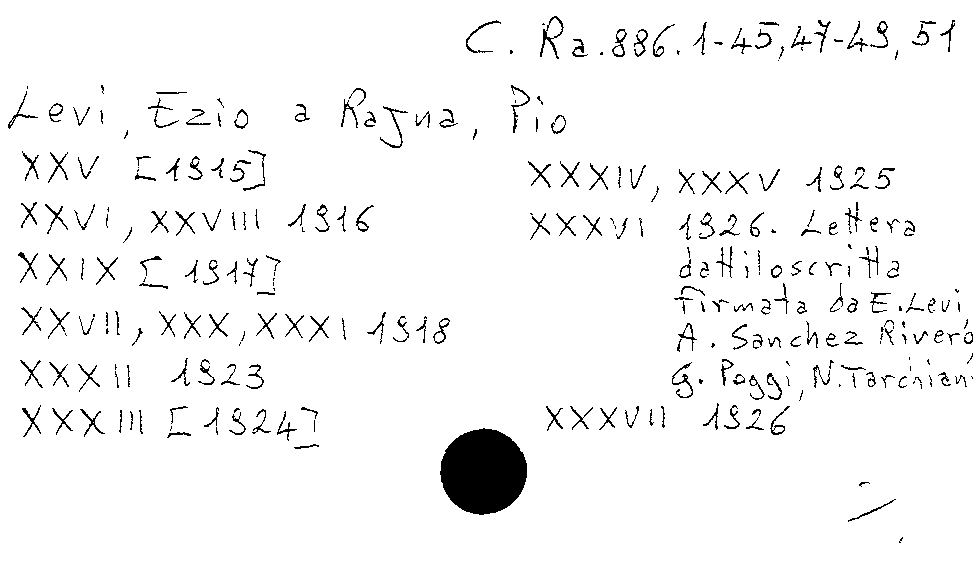 C. Ra.886.1-45,47-49,51
Levi, Ezio a Rajna, Pio
XXV [1915]
XXVI, XXVIII 1916
XXIX [1917]
XXVII, XXX, XXXI 1918
XXXII 1923
XXXIII [1924]
XXXIV, XXXV 1925
XXXVI 1926. Lettera
dattiloscritta
firmata da E.Levi,
A. Sanchez Rivero
G. Poggi, N.Tarchiani
XXXVII 1926